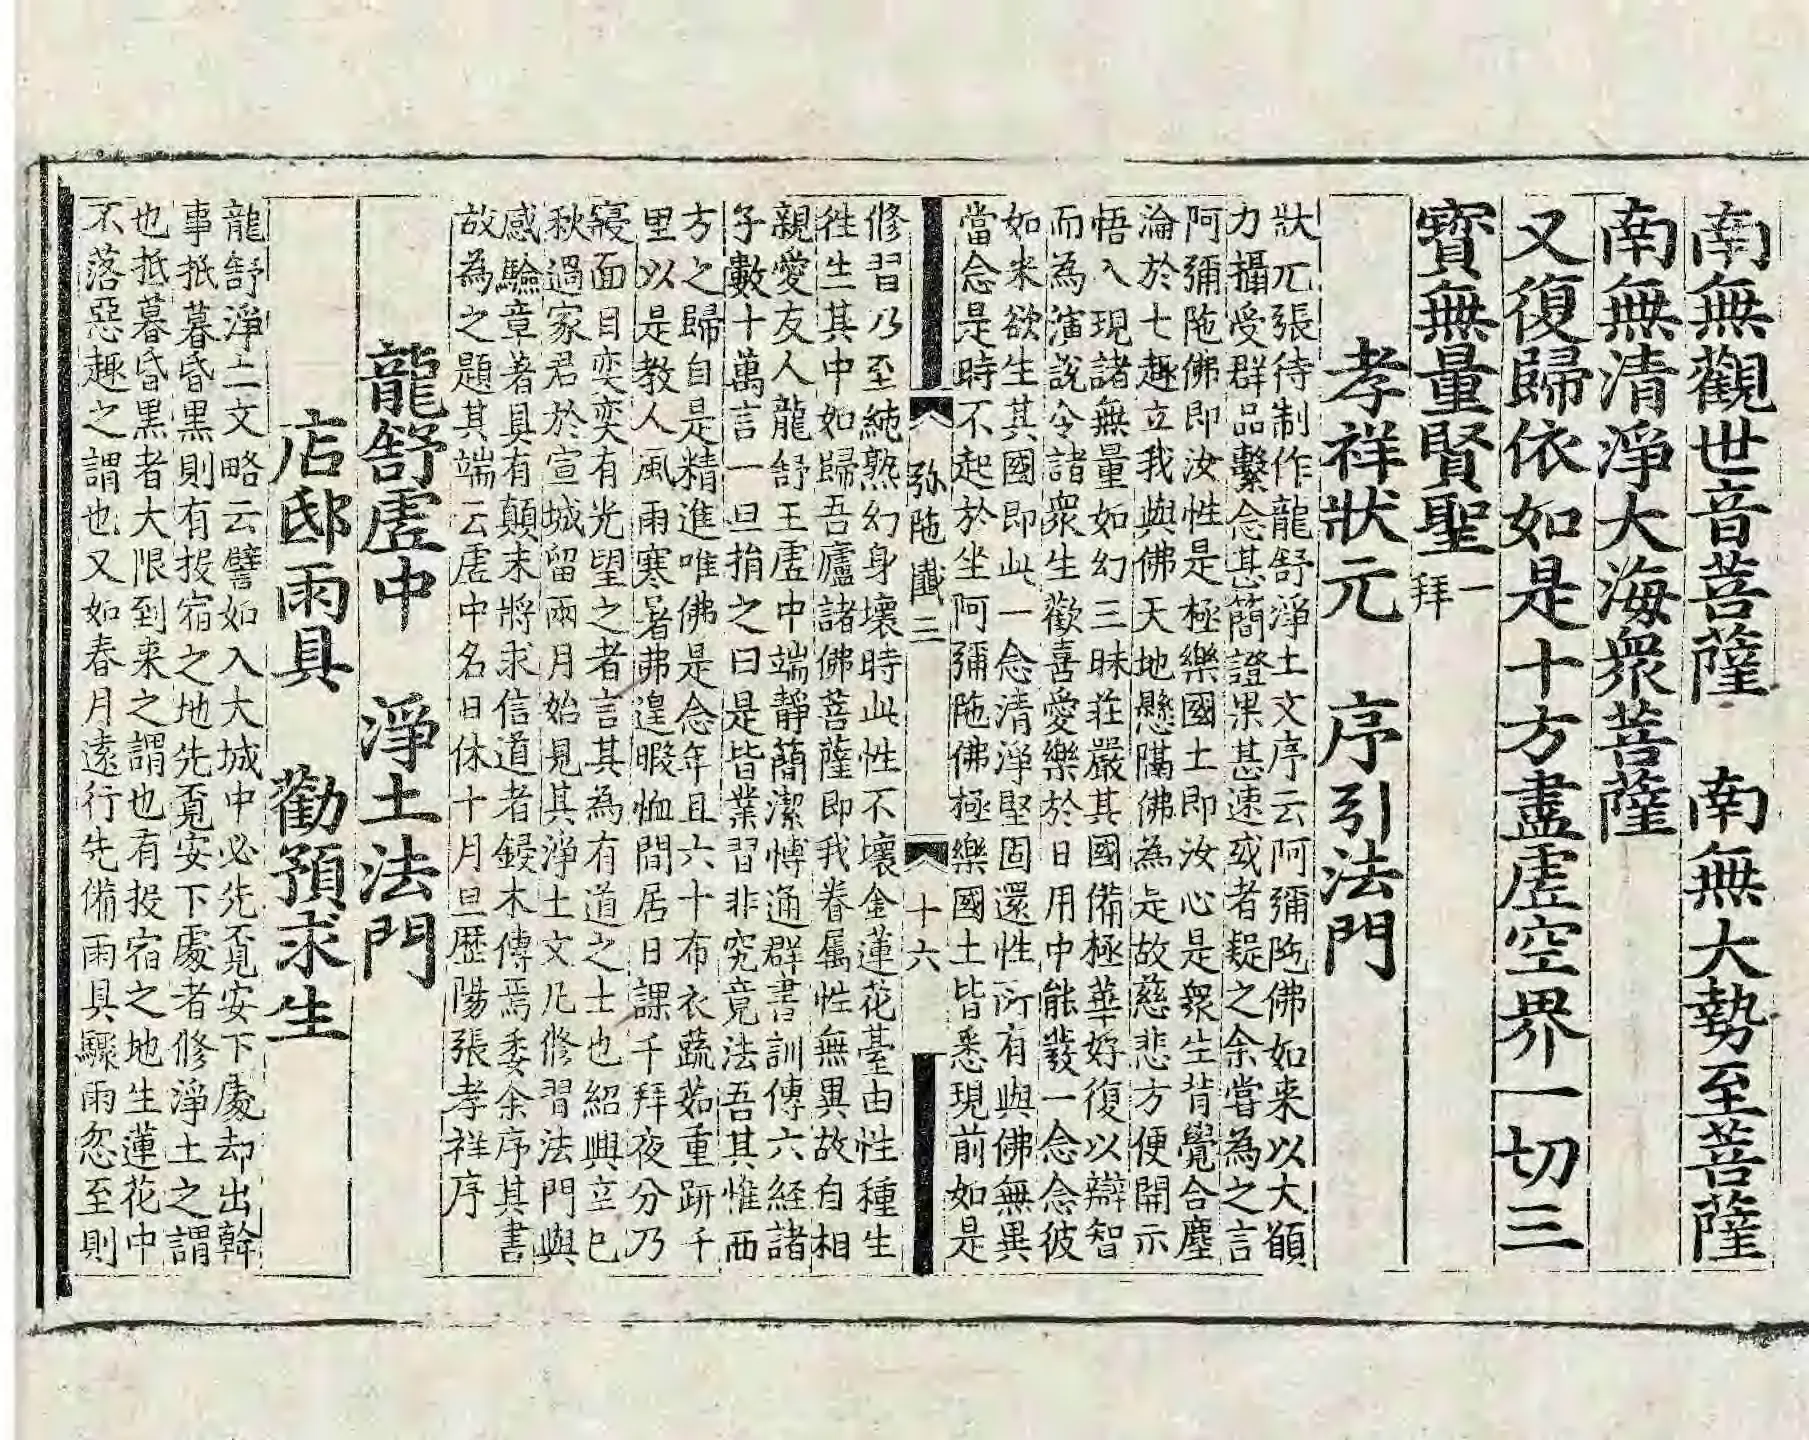 南無觀世音菩薩　南無大勢至菩薩
南無清淨大海眾菩薩
又復歸依如是十方盡虛空界一切三
寶無量賢聖一拜
孝祥狀元　序引法門
狀兀張待制作龍舒淨土文序云阿彌陁佛如来以大願
力攝受群品繫念甚簡證果甚速或者疑之余嘗為之言
阿彌陁佛即汝性是極樂國土即汝心是眾生背覺合塵
淪於七趣立我與佛天地懸隔佛為是故慈悲方便開示
悟入現諸無量如幻三昧莊嚴其國備極華好復以辯智
而為演說令諸眾生歡喜愛樂於日用中能發一念念彼
如来欲生其國即此一念清淨堅固還性所有與佛無異
當念是時不起於坐阿彌陁佛極樂國土皆悉現前如是
弥陁懴三　十六
修習乃至純熟幻身壞時此性不壞金蓮花臺由性種生
徃生其中如歸吾廬諸佛菩薩即我眷属性無異故自相
親愛友人龍舒王虛中端靜簡潔愽通群書訓傳六経諸
子數十萬言一旦捐之曰是皆業習非究竟法吾其惟西
方之歸自是精進唯佛是念年且六十布衣蔬茹重趼千
里以是教人風雨寒暑弗遑暇恤間居日課千拜夜分乃
寢面目奕奕有光望之者言其為有道之士也紹興立巳
秋過家君於宣城留兩月始見其淨土文凡修習法門與
感驗章著具有顛末將求信道者鋟木傳焉委余序其書
故為之題其端云虛中名日休十月旦歷陽張孝祥序
龍舒虛中　淨土法門
店邸雨具　勸預求生
龍舒淨土文略云譬如入大城中必先覓安下處却出幹
事抵暮昏黑則有投宿之地先覓安下處者修淨土之謂
也抵暮昏黑者大限到来之謂也有投宿之地生蓮花中
不落惡趣之謂也又如春月遠行先備雨具驟雨忽至則